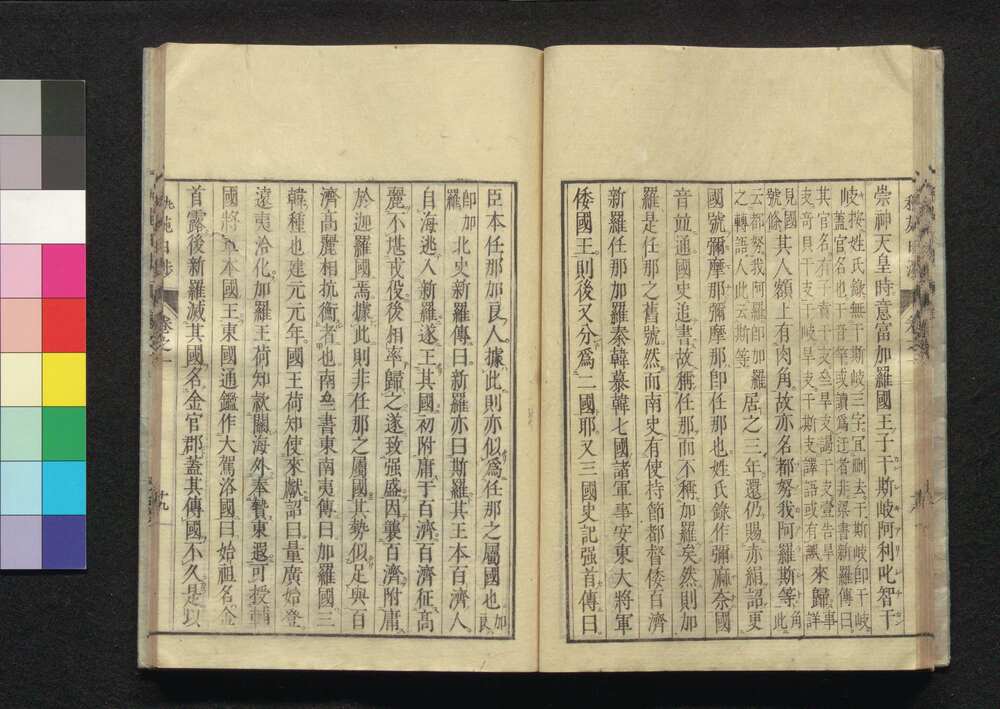 崇神天皇時意富加羅國王子于斯岐阿利叱智干
岐按姓氏錄無干斯岐三字宜刪去于斯岐卽干岐
蓋官名也干音竿或讀爲迂者非梁書新羅傳曰
其官名有子賁旱支壹旱支謁旱支壹告旱
支奇貝旱支
來歸事詳
見國號條其人額上有肉角故亦名都努我阿羅斯等此云都努我阿羅卽加羅
之轉語人此云斯等居之三年還仍賜赤絹詔更
國號彌摩那彌摩那卽任那也姓氏錄作彌麻奈國
音竝通國史追書故稱任那而不稱加羅矣然則加
羅是任那之舊號然而南史有使持節都督倭百濟
新羅任那加羅秦韓慕韓七國諸軍事安東大將軍
倭國王則後又分爲二國耶又三國史記强首傳曰
臣本任那加良人據此則亦似爲任那之屬國也加良
卽加羅北史新羅傳曰新羅亦曰斯羅其王本百濟人
自海逃入新羅遂王其國初附庸于百濟百濟征高
麗不堪戎役後相率歸之遂致强盛因襲百濟附庸
於迦羅國焉據此則非任那之屬國其勢似足與百
濟高麗相抗衡者也南齊書東南夷傳曰加羅國三
韓種也建元元年國王荷知使來獻詔曰量廣始登
遠夷洽化加羅王荷知款關海外奉贄東遐可授輔
國將軍本國王東國通鑑作大駕洛國曰始祖名金
首露後新羅滅其國名金官郡蓋其傳國不久是以
卷之一
十九